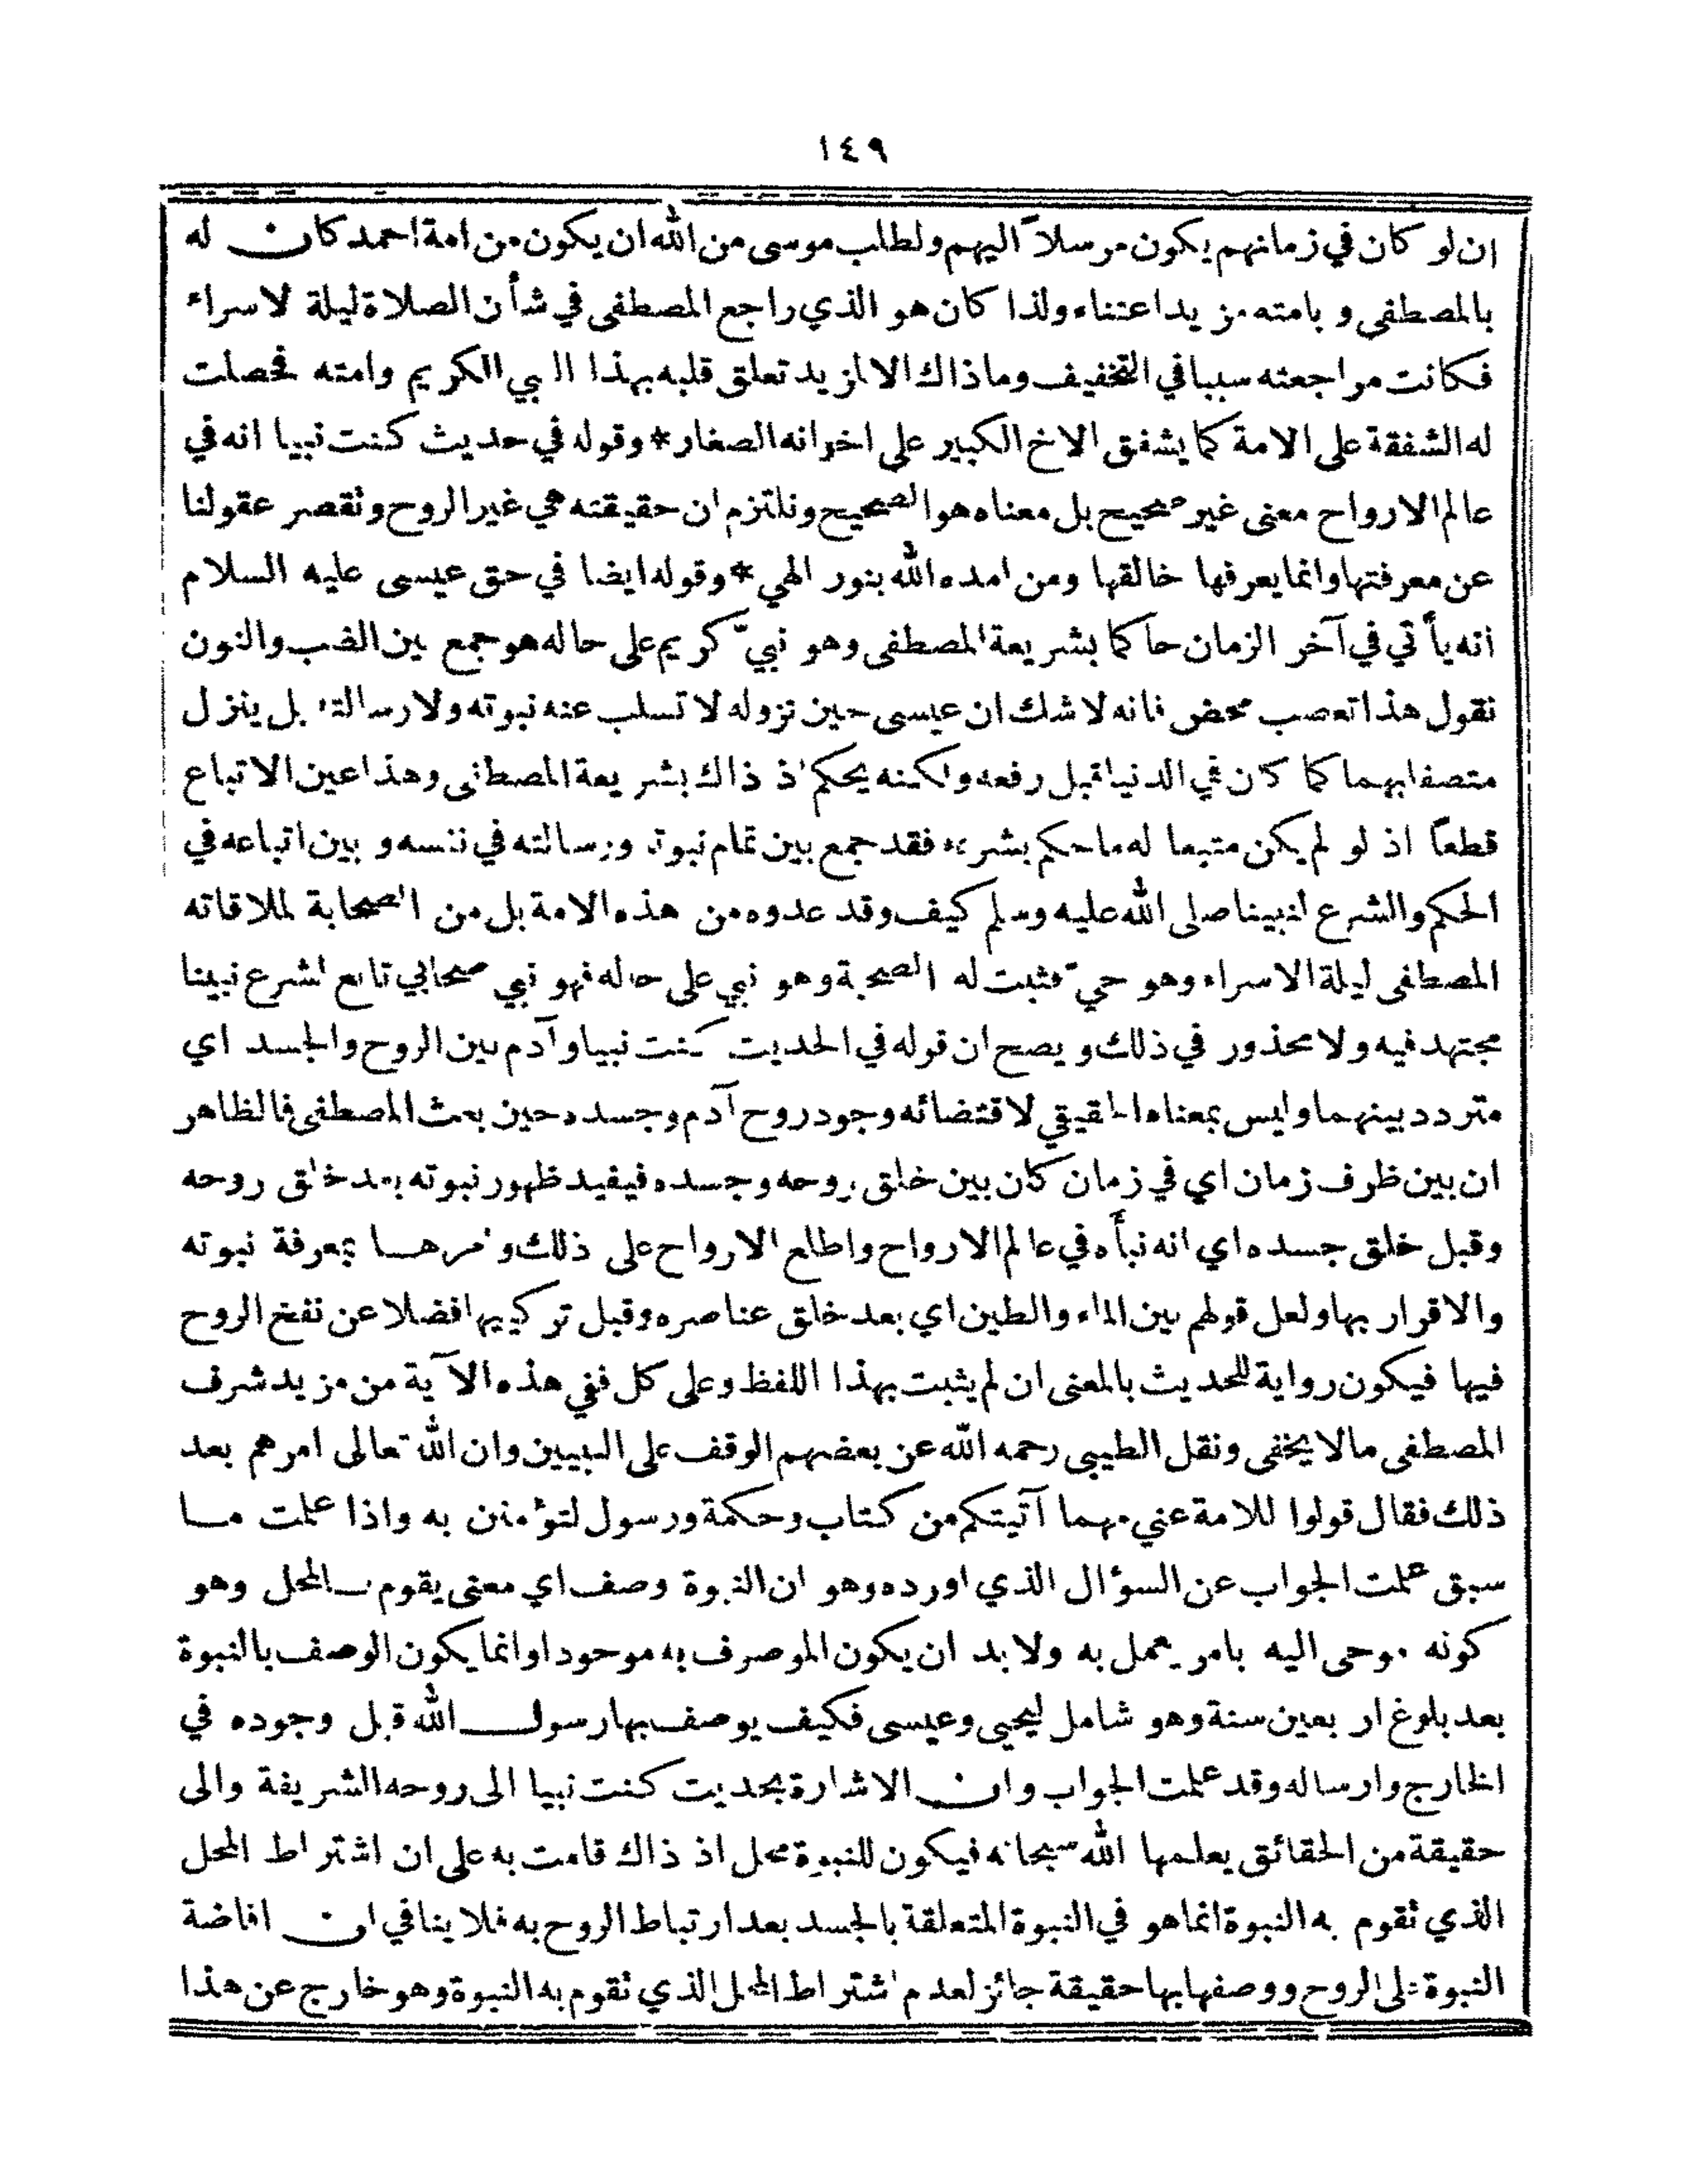 ١٤٩
ان لو كان في زمانهم يكون مرسلاً اليهم ولطلب موسى من الله ان يكون من امة احمد كان له
بالمصطفى و بامته مزيد اعتناء ولذا كان هو الذي راجع المصطفى في شأن الصلاة ليلة لاسراء
فكانت مراجعته سببا في التخفيف وما ذاك الا لمزيد تعلق قلبه بهذا النبي الكريم وامته فحصلت
له الشفقة على الامة كما يشفق الاخ الكبير على اخوانه الصغار * وقوله في حديث كنت نبيا انه في
عالم الارواح معنى غير صحيح بل معناه هو الصحيح ونلتزم ان حقيقته هي غير الروح وتقصر عقولنا
عن معرفتها وانما يعرفها خالقها ومن امده الله بنور الهي * وقوله ايضا في حق عيسى عليه السلام
انه يأتي في آخر الزمان حاكما بشريعة المصطفى وهو نبيّ كريم على حاله هو جمع بين الضب والنون
نقول هذا تعصب محض فانه لا شك ان عيسى حين نزوله لا تسلب عنه نبوته ولا رسالته بل ينزل
متصفا بهما كما كان في الدنيا قبل رفعه ولكنه يحكم اذ ذاك بشريعة المصطفى وهذا عين الاتباع
قطعاً اذ لو لم يكن متبعا له ما حكم بشرعه فقد جمع بين تمام نبوته ورسالته في نفسه و بين اتباعه في
الحكم والشرع لنبينا صلى الله عليه وسلم كيف وقد عدوه من هذه الامة بل من الصحابة لملاقاته
المصطفى ليلة الاسراء وهو حيّ فثبت له الصحبة وهو نبي على حاله فهو نبي صحابي تابع لشرع نبينا
مجتهد فيه ولا محذور في ذلك و يصح ان قوله في الحديث كنت نبيا وآدم بين الروح والجسد اي
متردد بينهما وليس بمعناه الحقيقي لاقتضائه وجود روح آدم وجسده حين بعث المصطفى فالظاهر
ان بين ظرف زمان اي في زمان كان بين خلق روحه وجسده فيفيد ظهور نبوته بعد خلق روحه
وقبل خلق جسده اي انه نبأه في عالم الارواح واطلع الارواح على ذلك وامرهـا بمعرفة نبوته
والاقرار بها ولعل قولهم بين الماء والطين اي بعد خلق عناصره وقبل تركيبها فضلا عن نفخ الروح
فيها فيكون رواية للحديث بالمعنى ان لم يثبت بهذا اللفظ وعلى كل ففي هذه الآية من مزيد شرف
المصطفى مالا يخفى ونقل الطيبي رحمه الله عن بعضهم الوقف على النبيين وان الله تعالى امرهم بعد
ذلك فقال قولوا للامة عني مهما آتيتكم من كتاب وحكمة ورسول لتؤمنن به واذا علمت مـا
سبق علمت الجواب عن السؤال الذي اورده وهو ان النبوة وصف اي معنى يقوم بـالمحل وهو
كونه موحى اليه بامر يعمل به ولا بد ان يكون الموصوف به موجودا وانما يكون الوصف بالنبوة
بعد بلوغ اربعين سنة وهو شامل ليحيى وعيسى فكيف يوصف بها رسول الله قبل وجوده في
الخارج وارساله وقد علمت الجواب وان الاشارة بحديث كنت نبيا الى روحه الشريفة والى
حقيقة من الحقائق يعلمها الله سبحانه فيكون للنبوة محل اذ ذاك قامت به على ان اشتراط المحل
الذي تقوم به النبوة انما هو في النبوة المتعلقة بالجسد بعد ارتباط الروح به فلا ينافي ان افاضة
النبوة على الروح ووصفها بها حقيقة جائز لعدم اشتراط المحل الذي تقوم به النبوة وهو خارج عن هذا